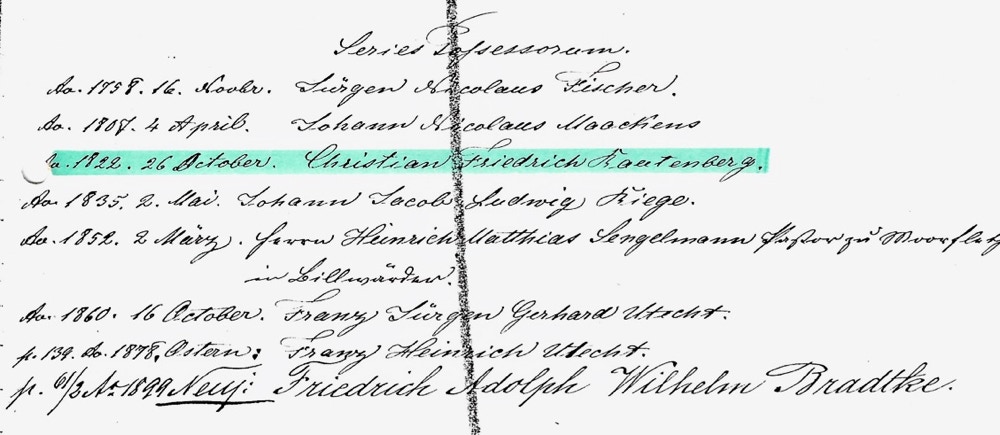 Series Possessorum.
Ao. 1758. 16. Novbr. Jürgen Nicolaus Fischer.
Ao. 1807. 4 April. Johann Nicolaus Maackens
Ao. 1822. 26 October. Christian Friedrich Rautenberg.
Ao. 1835. 2. Mai. Johann Jacob Ludwig Riege.
Ao. 1852. 2 März. Herrn Heinrich Matthias Sengelmann Pastor zu Moorfleth
in Billwärder.
Ao. 1860. 16 October. Franz Jürgen Gerhard Utecht.
p. 139. Ao. 1878. Ostern: Franz Heinrich Utecht.
p. Ao 1899 Neuj: Friedrich Adolph Wilhelm Bradtke.